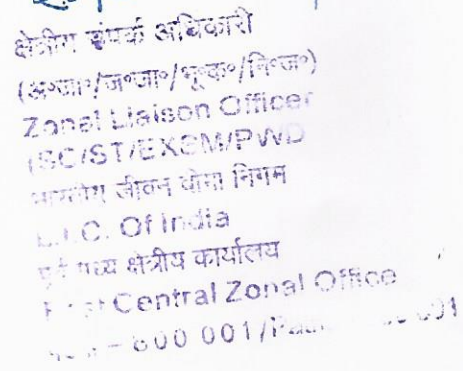 क्षेत्रीय संपर्क अधिकारी
(अ०जा०/ज०जा०/भू०क०/नि०ज०)
Zonal Liaison Officer
(SC/ST/EXSM/PWD
भारतीय जीवन बीमा निगम
L.I.C. Of India
पूर्व मध्य क्षेत्रीय कार्यालय
East Central Zonal Office
- 800 001/